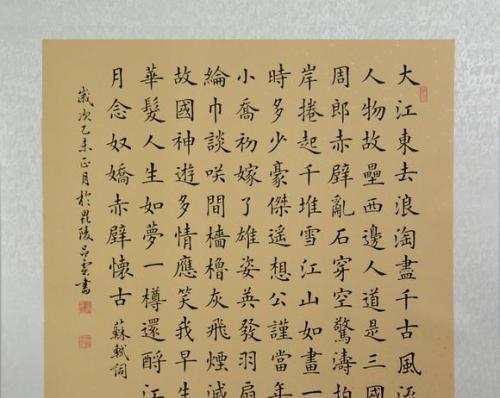 大江東去浪淘盡千古風流
人物故壘西邊人道是三國
周郎赤壁亂石穿空驚濤拍
岸捲起千堆雪江山如畫一
時多少豪傑遙想公謹當年
小喬初嫁了雄姿英發羽扇
綸巾談咲間檣櫓灰飛煙滅
故國神遊多情應笑我早生
華髮人生如夢一樽還酹江
月念奴嬌赤壁懷古 蘇軾詞
歲次乙未正月於毘陵呂雲書